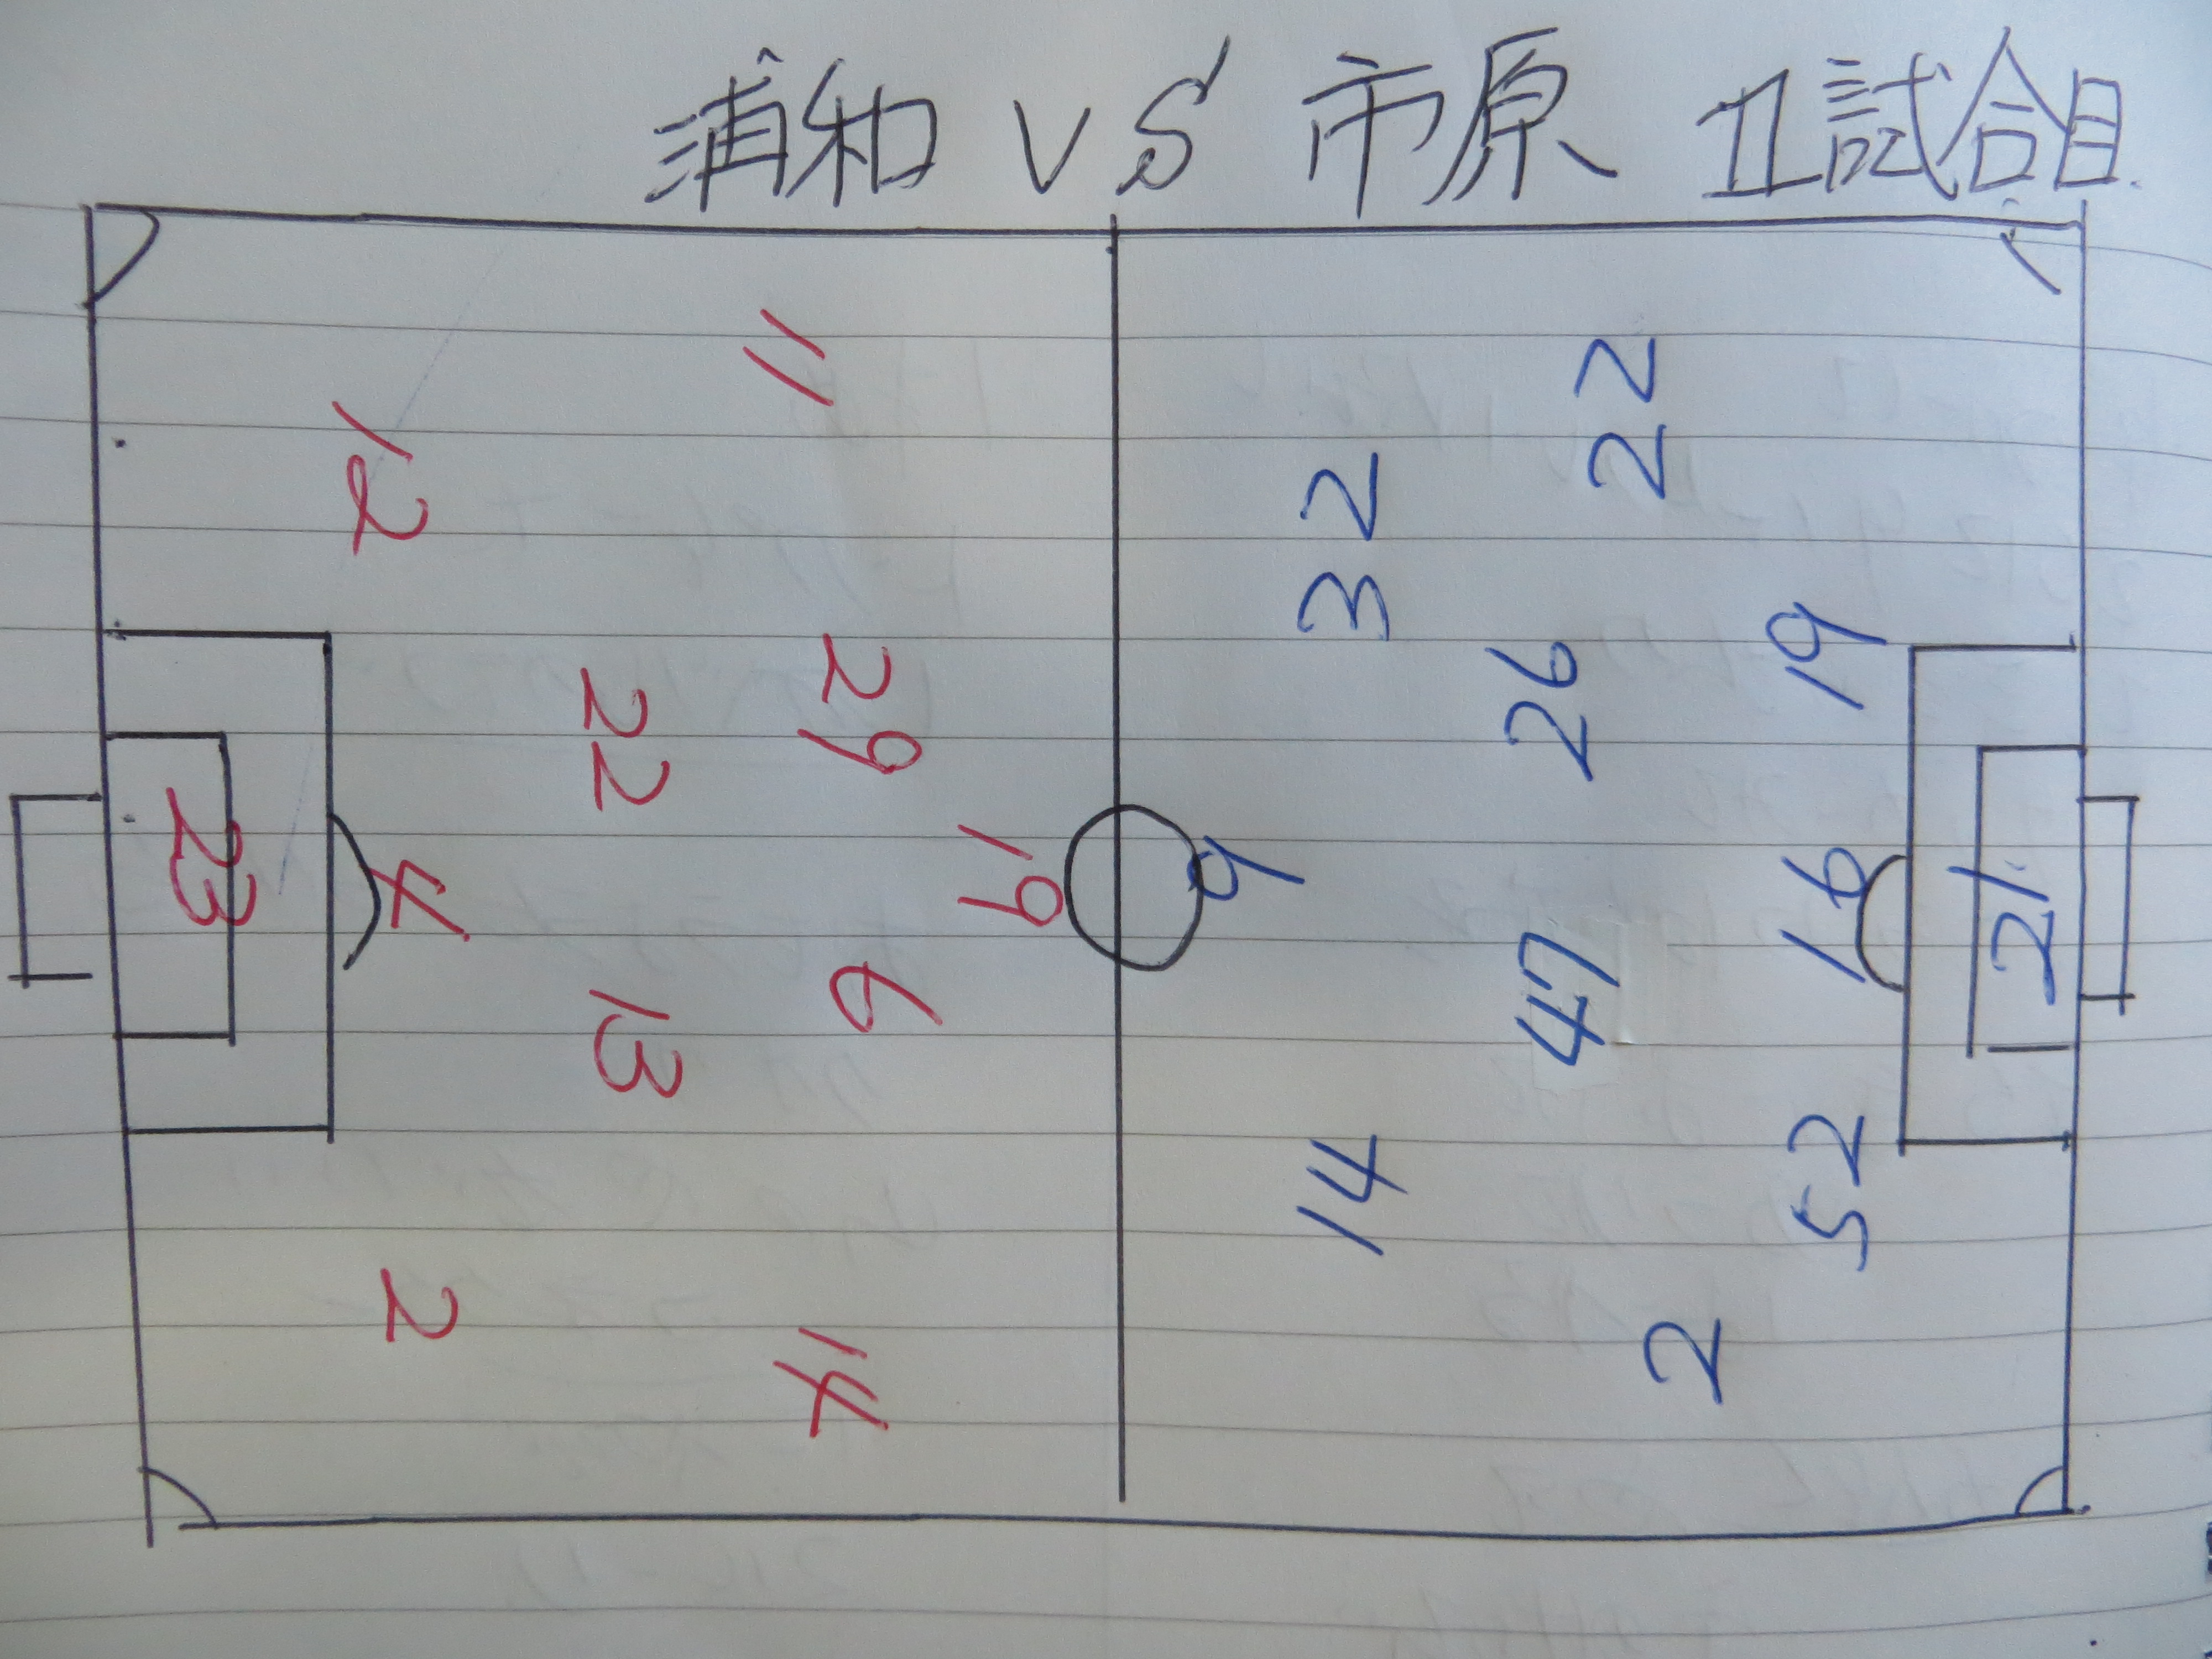 浦和 VS 市原 II試合目
11
12
29
22
19
23
4
6
13
2
14
22
32
19
26
9
16
21
47
14
52
2